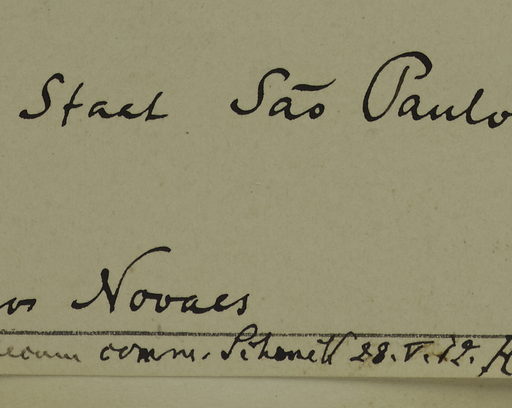 Staat São Paulo
Novaes
comm. Schenell 28. V. 12.